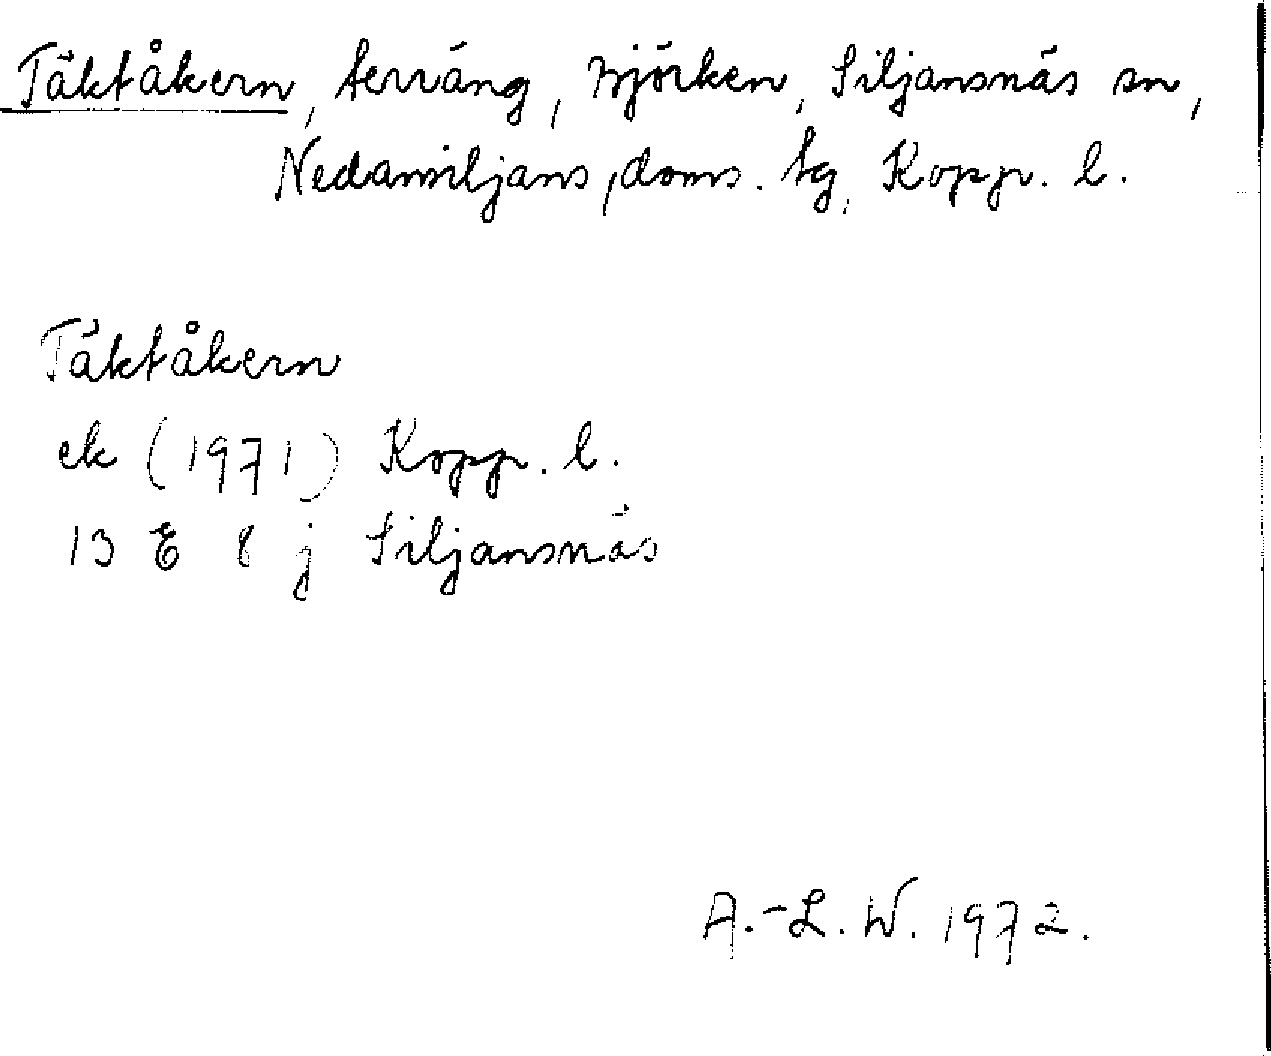 Täktåkern, terräng, Björken, Siljansnäs sn,
Nedansiljans, doms. tg, Kopp. l.
Täktåkern
ek (1971) Kopp. l.
13 E 8 j Siljansnäs
A.-L. W. 1972.